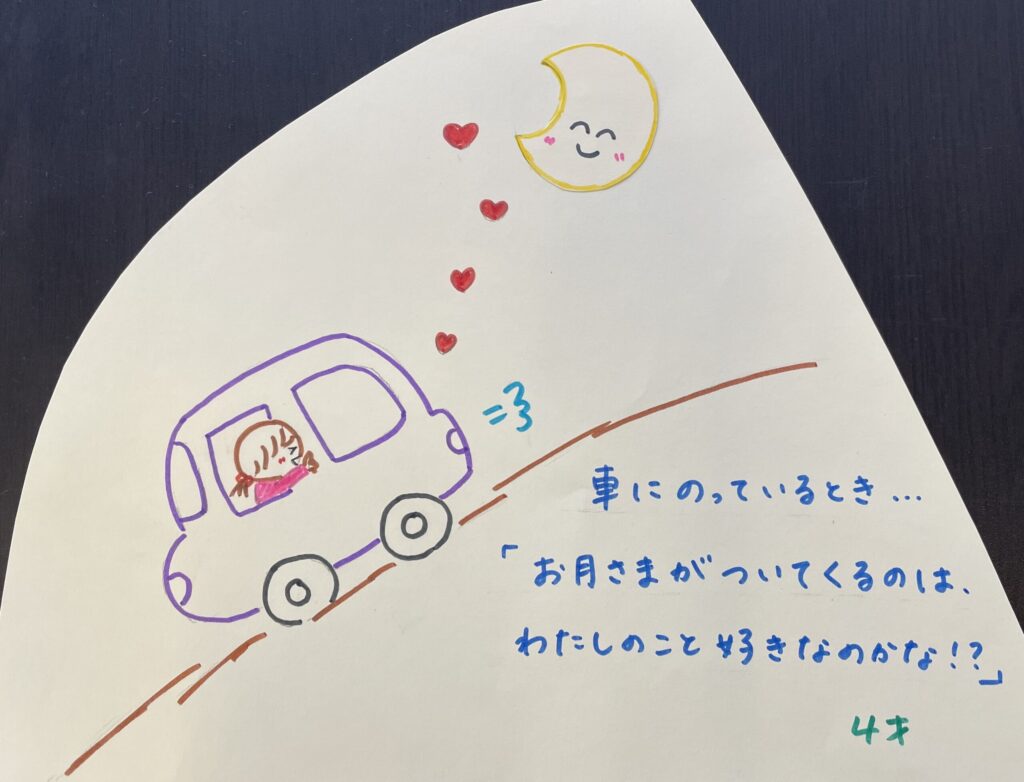 車にのっているとき...
「お月さまがついてくるのは、
わたしのこと好きなのかな!?」
4才